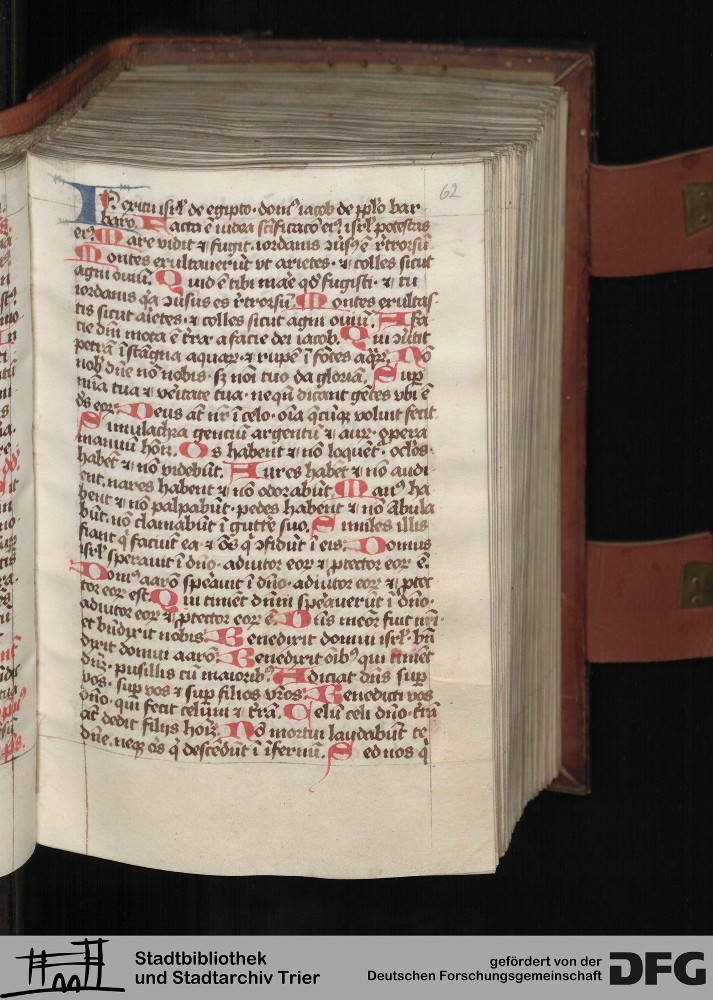 62
In exitu isrl de egipto · domus iacob de pplo bar
baro. Facta ē iudea scificacō eiꝰ isrl potestas
eiꝰ. Mare vidit ⁊ fugit · iordanis ꝯūsꝰ ē rtrorsū
Montes exultauerūt vt arietes · ⁊ colles sicut
agni ouiū. Quid ē tibi mare qd fugisti · ⁊ tu
iordanis qa ꝯūsus es rtrorsū Montes exultas
tis sicut arietes · ⁊ colles sicut agni ouiū. A fa
cie dni mota ē tra a facie dei iacob. Qui ꝯūtit
petrā ī stāgna aquaꝝ ⁊ rupē ī fōtes aqꝝ. Nō
nob dne nō nobis · sꝫ noī tuo da gloriā. Sup
mīa tua ⁊ vēitate tua · neqn dicant gētes vbi ē
ds eoꝝ. Deus at nr ī celo · oīa qcūqꝫ voluit fecit
Simulachra genciū argentū ⁊ auꝝ · opera
manuū hom. Os habent ⁊ nō loquēt · oclos
habēt ⁊ nō videbūt. Aures habēt ⁊ nō audi
ent. nares habent ⁊ nō odorabūt. Manꝰ ha
bent ⁊ nō palpabūt · pedes habent ⁊ nō ābula
būt. nō clamabūt ī guttē suo. Similes illis
fiant q faciūt ea ⁊ ōs q ꝯfidūt ī eis. Domus
isrl sperauit ī dno · adiutor eoꝝ ⁊ ptector eoꝝ ē.
Domꝰ aarō speauit ī dno · adiutor eoꝝ ⁊ ptec
tor eoꝝ est. Qui timēt dnm speauerūt ī dno ·
adiutor eoꝝ ⁊ ptector eoꝝ ē. Dns meoꝝ fuit nri
et bndixit nobis. Benedixit domui isrl · bn
dixit domui aarō. Benedixit oībꝰ qui timēt
dnm · pusillis cū maioribꝰ. Adiciat dns sup
vos · sup vos ⁊ sup filios vros. Benedicti vos
dno · qui fecit celum ⁊ trā. Celū celi dno · trā
at dedit filijs hom. Nō mortui laudabūt te
dne. neqꝫ ōs q descēdūt ī ifernū. Sed nos q
Stadtbibliothek
und Stadtarchiv Trier
gefördert von der
Deutschen Forschungsgemeinschaft
DFG